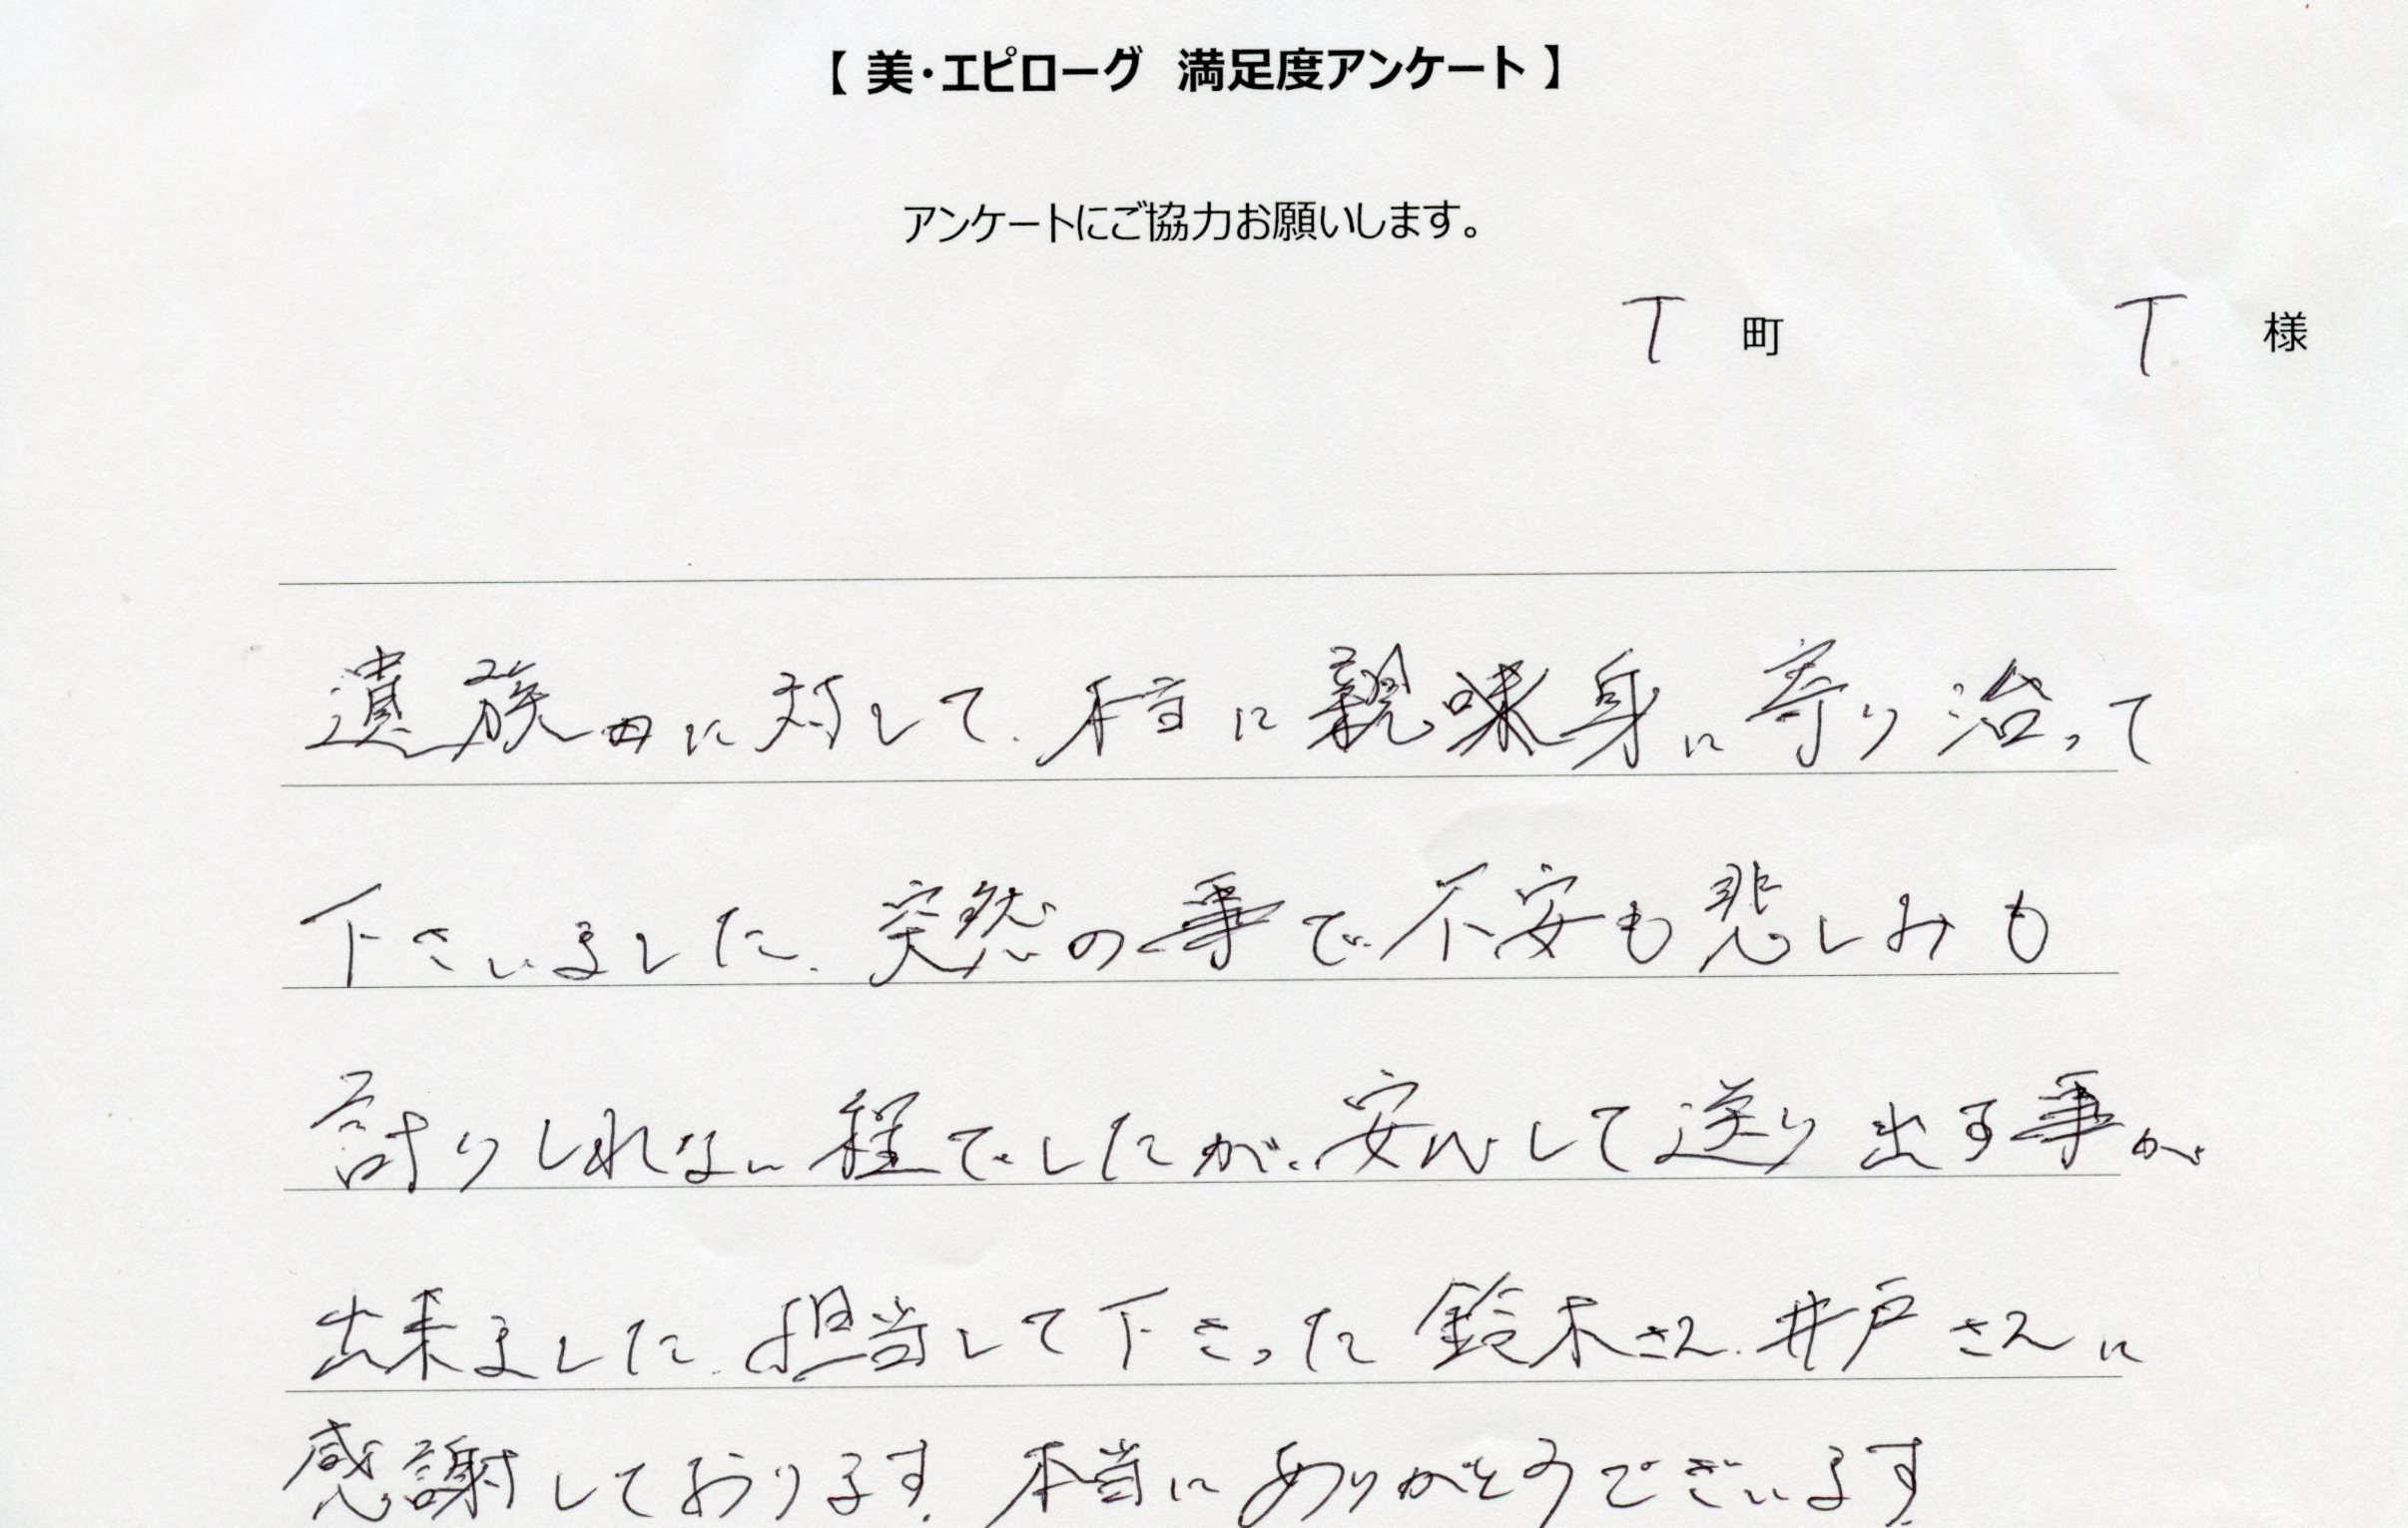 【 美・エピローグ 満足度アンケート 】
アンケートにご協力お願いします。
T 町 T 様
遺族に対して、本当に親味身に寄り沿って
下さいました、突然の事で不安も悲しみも
計りしれない程でしたが、安心して送り出す事が
出来ました、担当して下さった鈴木さん、井戸さんに
感謝しております、本当にありがとうございます